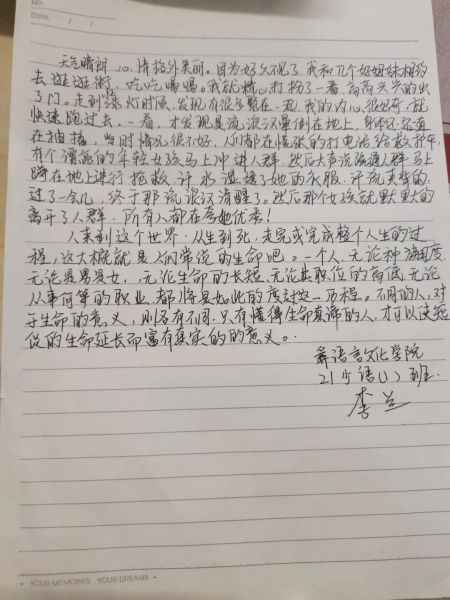 No.
Date. / /
天气晴朗，心情格外美丽。因为好久不见了，我和几个好姐妹相约
去逛逛街，吃吃喝喝。我就精心打扮了一番，高高兴兴的出
了门。走到红绿灯时候，发现有很多人聚在一起，我的内心很好奇，就
快速跑过去。一看，才发现是流浪汉晕倒在地上，身体还在
在抽搐，当时情况很不好，人们都在慌张的打电话给救护车，
有个漂亮的年轻女孩马上冲进人群，然后大声说疏通人群，马上
跪在地上进行抢救，汗水浸透了她的衣服，汗流夹背的
过了一会儿，终于那流浪汉清醒了。然后那个女孩就默默的
离开了人群，所有人都在夸她优秀！
人来到这个世界，从生到死，走完或完成整个人生的过
程，这大概就是人们常说的生命吧。一个人，无论种
无论是男是女，无论生命的长短，无论其职位的高低，无论
从事何等的职业，都将是如此的度过这一历程。不同的人，对
于生命的意义，则各有不同，只有懂得生命真谛的人，才可以使短
促的生命延长而富有真实的的意义。
彝语言文化学院
21 语(1) 班.
李兰
YOUR MEMORIES YOUR DREAMS